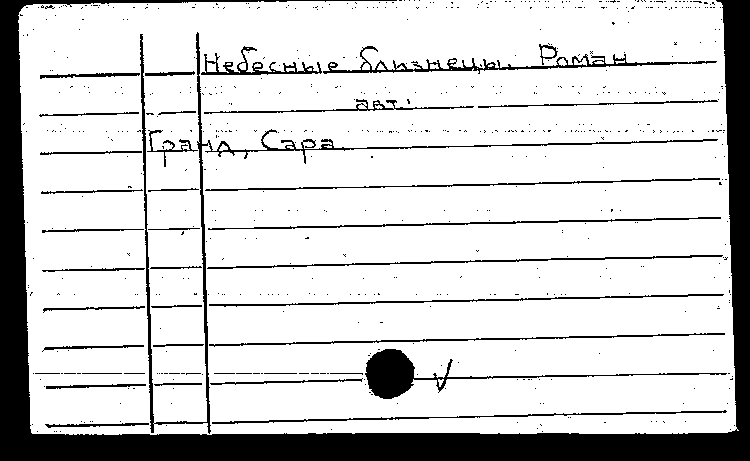 Небесные близнецы. Роман
авт.:
Гранд, Сара.